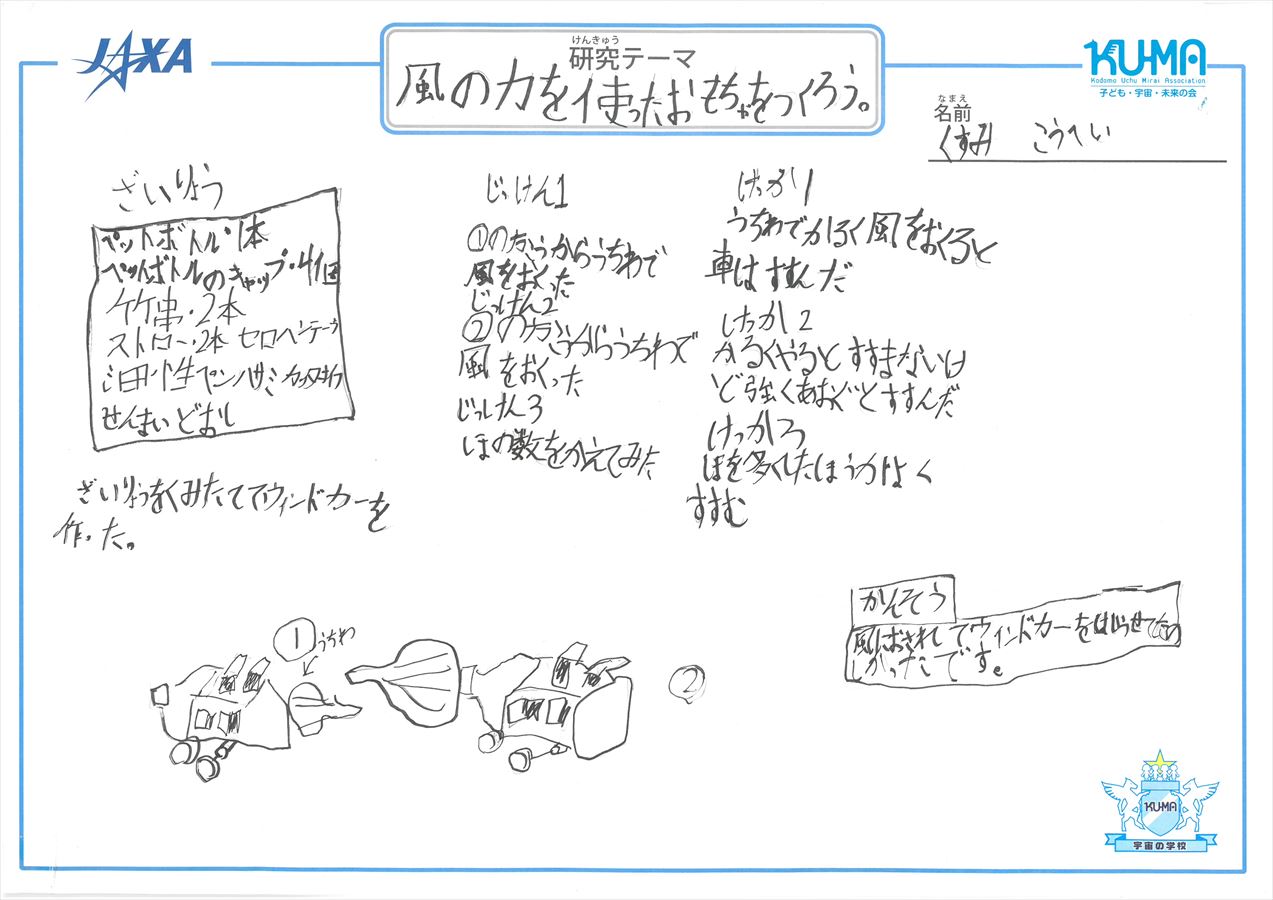 JAXA
けんきゅう
研究テーマ
風の力を使ったおもちゃをつくろう。
KU-MA
Kodomo Uchu Mirai Association
子ども・宇宙・未来の会
なまえ
名前
くすみ こうへい
ざいりょう
ペットボトル・1本
ペットボトルのキャップ・4個
竹串・2本
ストロー・2本 セロハンテープ
油性ペン ハサミ カッターナイフ
せんまいどおし
ざいりょうをくみたててウィンドカーを
作った。
じっけん1
①のほうからうちわで
風をおくった
じっけん2
②のほうからうちわで
風をおくった
じっけん3
ほの数をかえてみた
けっか1
うちわでかるく風をおくると
車はすすんだ
けっか2
かるくやるとすすまないけ
ど強くあおぐとすすんだ
けっか3
ほを多くしたほうがよく
すすむ
① うちわ
②
かんそう
風におされしてウィンドカーをはしらせて
かったです。
KU-MA
宇宙の学校